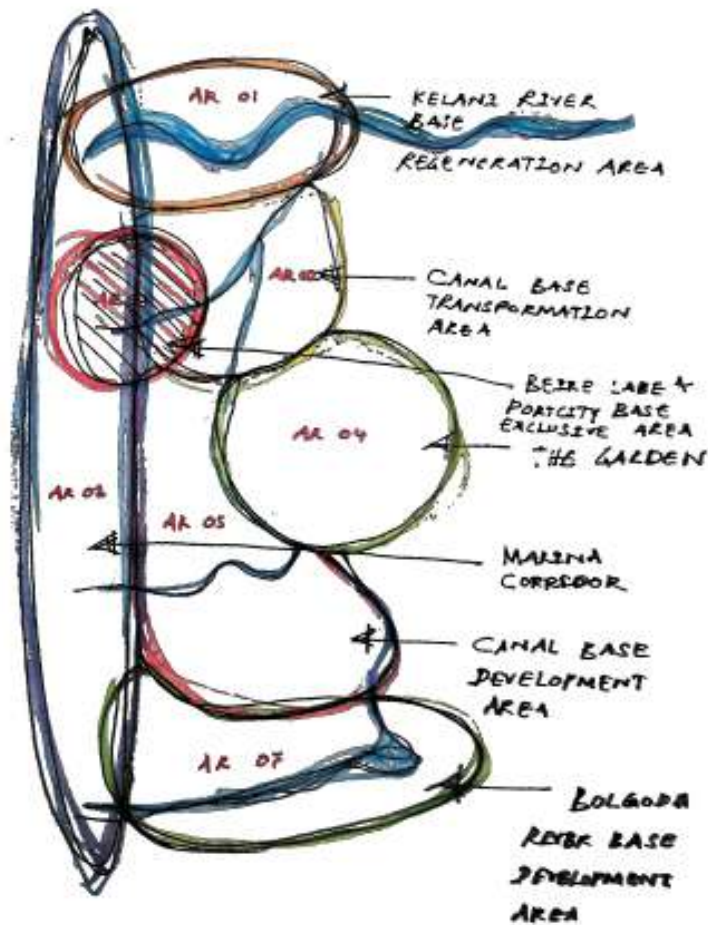 AR 01
KELANI RIVER
BASE
REGENERATION AREA
AR
CANAL BASE
TRANSFORMATION
AREA
AR
BEIRE LAKE &
PORTCITY BASE
EXCLUSIVE AREA
THE GARDEN
AR 04
AR 02
AR 05
MARINA
CORRIDOR
CANAL BASE
DEVELOPMENT
AREA
AR 07
BOLGODA
RIVER BASE
DEVELOPMENT
AREA